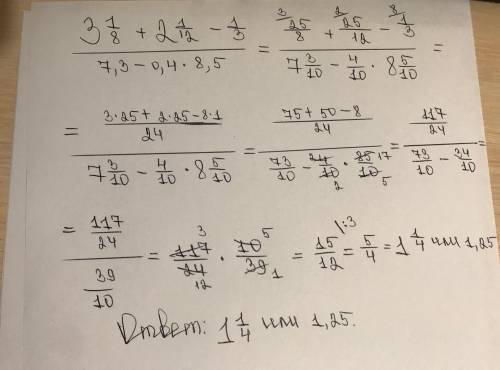 (3 1/8 + 2 1/12 − 1/3) / (7,3 − 0,4 · 8,5) = (³ 25/8 + ² 25/12 − ⁸ 1/3) / (7 3/10 − 4/10 · 8 5/10) =
= ((3·25 + 2·25 − 8·1)/24) / (7 3/10 − 4/10 · 8 5/10) = ((75 + 50 − 8)/24) / (73/10 − 2 · 85 17/10 5) = (117/24) / (73/10 − 34/10) =
= (117/24) / (39/10) = 117 3/24 12 · 10 5/39 1 = 15/12 \:3 = 5/4 = 1 1/4 или 1,25
Ответ: 1 1/4 или 1,25.